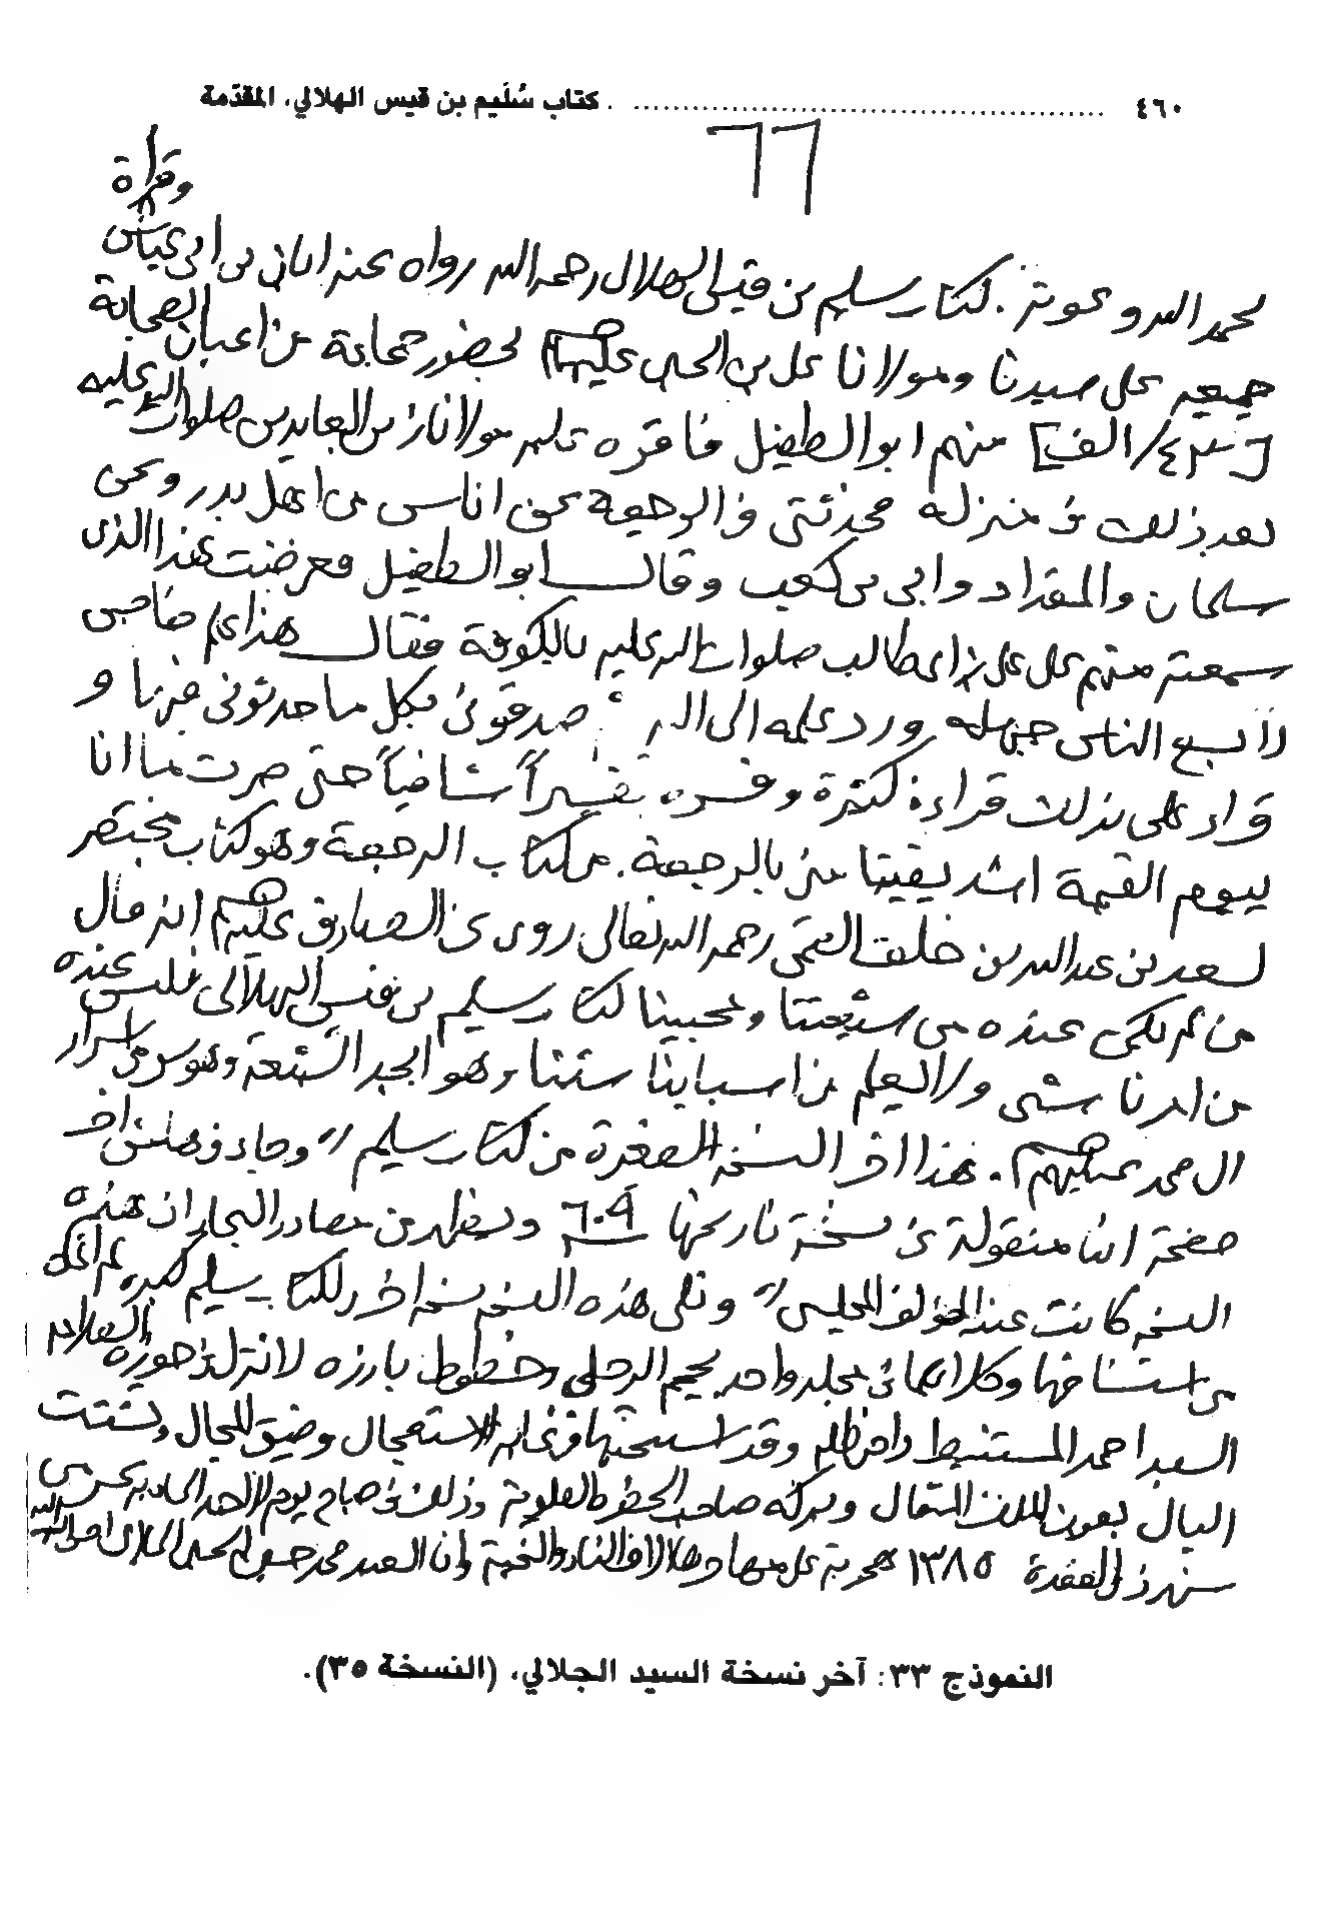 ٤٦٠ ........ كتاب سُلَيم بن قيس الهلالي، المقدّمة
٦٦
وقراه
بحمد الله وعونه . كتاب سليم بن قيس الهلالي رحمه الله رواه عنه ابان بن ابي عياش
جميعه على سيدنا ومولانا علي بن الحسين عليهم بحضور جماعة من اعيان الصحابة
[٤٣/الف] منهم ابو الطفيل فاقره عليه مولانا زين العابدين صلوات الله عليه
بعد ذلك في منزله فحدثني في الرجعة عن اناس من اهل بدر وعن
سلمان والمقداد وابي بن كعب وقال ابو الطفيل فعرضت هذا الذي
سمعته منهم على علي بن ابي طالب صلوات الله عليه بالكوفة فقال هذا علم خاص
لا يسع الناس جهله ورد علمه الى الله صدقوني بكل ما حدثوني فيها و
قراء علي بذلك قراءة كثيرة وفسره تفسيراً شافياً حتى صرت ما انا
بيوم القيمة اشد يقينا مني بالرجعة . من كتاب الرجعة وهو كتاب مختصر
لسعد بن عبد الله بن خلف القمي رحمه الله تعالى روى عن الصادق عليهم انه قال
من لم يكن عنده من شيعتنا ومحبينا كتاب سليم بن قيس الهلالي فليس عنده
من امرنا شي ولا يعلم من اسبابنا شيئا وهو ابجد الشيعة وهو سر من اسرار
ال محمد عليهم . هذا اخر النسخة الصغيرة من كتاب سليم " وجاء في هامش اخر
صفحة انها منقولة عن نسخة تاريخها ٦٠٩ ويظهر من مصادر البحار ان هذه
النسخة كانت عند المؤلف المجلسي " وتلى هذه النسخة نسخة اخرى لكتاب سليم كبيره لم اتمكن
من استنساخها وكلاهما في مجلد واحد بحجم الرحلي وخطوط بارزه لا تزال في حوزه العلامه
السيد احمد المستنبط دام ظله وقد استنسختها في غاية الاستعجال وضيق المجال وتشتت
البال بعون الملك المتعال وببركة صاحب الحضرة العلوية وذلك في صباح يوم الاحد الحادي عشر من
شهر ذي القعدة ١٣٨٥ هجرية على مهاجرها الاف الثناء والتحية وانا العبد محمد حسين الحسيني الجلالي
النموذج ٣٣: آخر نسخة السيد الجلالي، (النسخة ٣٥).